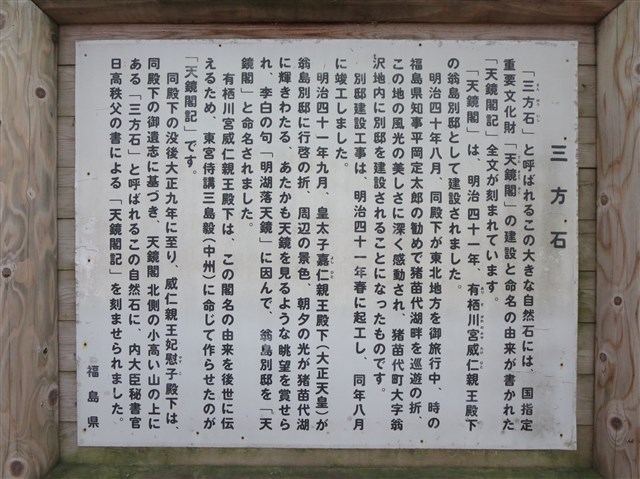 三方石
「三方石」と呼ばれるこの大きな自然石には、国指定
重要文化財「天鏡閣」の建設と命名の由来が書かれた
「天鏡閣記」全文が刻まれています。
「天鏡閣」は、明治四十一年、有栖川宮威仁親王殿下
の翁島別邸として建設されました。
明治四十年八月、同殿下が東北地方を御旅行中、時の
福島県知事平岡定太郎の勧めで猪苗代湖畔を巡遊の折、
この地の風光の美しさに深く感動され、猪苗代町大字翁
沢地内に別邸を建設されることになったものです。
別邸建設工事は、明治四十一年春に起工し、同年八月
に竣工しました。
明治四十一年九月、皇太子嘉仁親王殿下（大正天皇）が
翁島別邸に行啓の折、周辺の景色、朝夕の光が猪苗代湖
に輝きわたる、あたかも天鏡を見るような眺望を賞せら
れ、李白の句「明湖落天鏡」に因んで、翁島別邸を「天
鏡閣」と命名されました。
有栖川宮威仁親王殿下は、この閣名の由来を後世に伝
えるため、東宮侍講三島毅（中州）に命じて作らせたのが
「天鏡閣記」です。
同殿下の没後大正九年に至り、威仁親王妃慰子殿下は、
同殿下の御遺志に基づき、天鏡閣北側の小高い山の上に
ある「三方石」と呼ばれるこの自然石に、内大臣秘書官
日高秩父の書による「天鏡閣記」を刻ませられました。
福島県